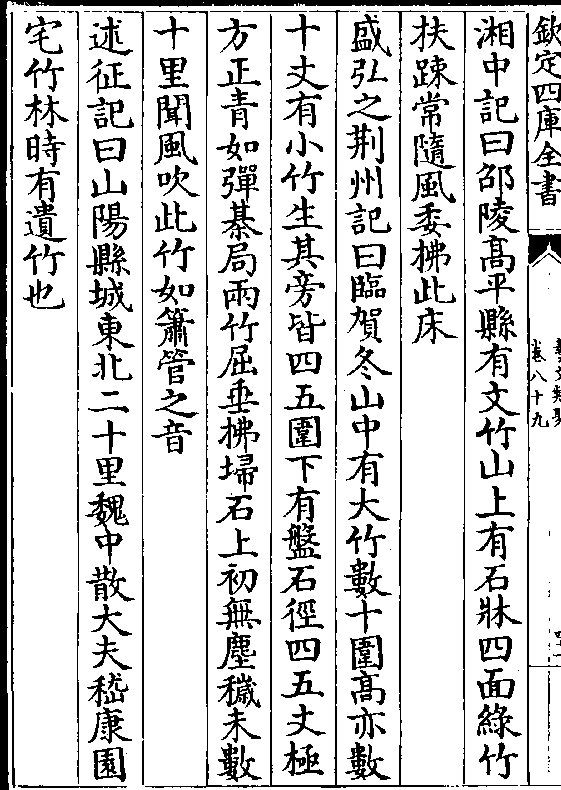 欽定四庫全書
藝文類聚
卷八十九
湘中記曰邵陵高平縣有文竹山上有石牀四面綠竹
扶疎常隨風委拂此床
盛弘之荆州記曰臨賀冬山中有大竹數十圍高亦數
十丈有小竹生其旁皆四五圍下有盤石徑四五丈極
方正青如彈棊局兩竹屈垂拂埽石上初無塵穢未數
十里聞風吹此竹如簫管之音
述征記曰山陽縣城東北二十里魏中散大夫嵇康園
宅竹林時有遺竹也